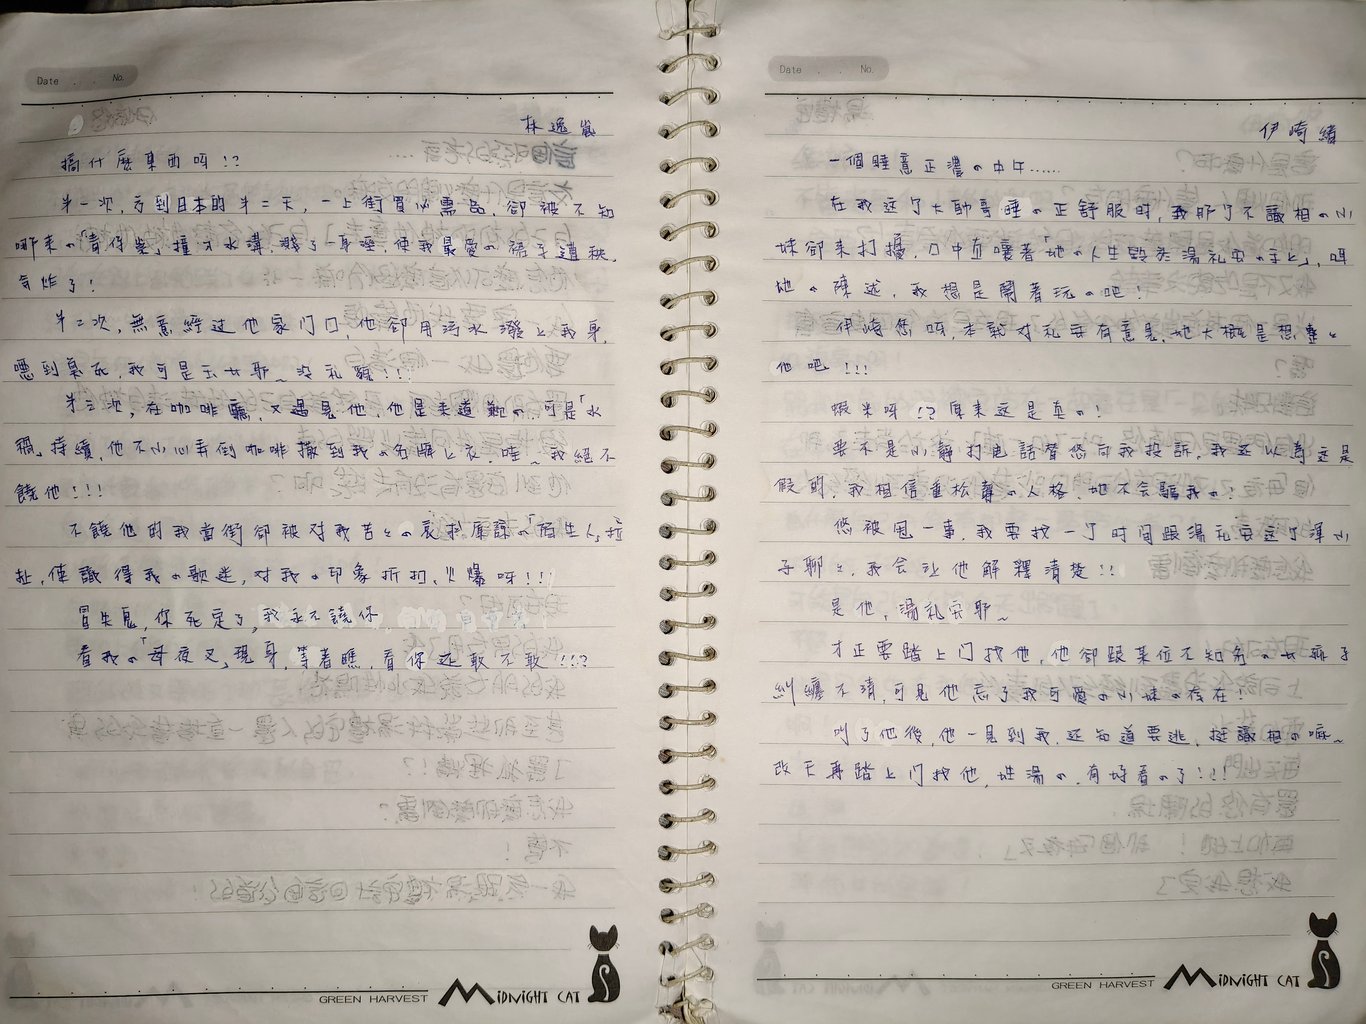 Date . . No.
林逸嵐
搞什麼東西呀!?
第一次,方到日本的第二天,一上街買必需品,卻被不知
哪來の
撞才水溝,賤了一身哑,使我最愛の裙子遭秧,
氣炸了!
第二次,無意經过他家门口,他卻用污水潑上我身,
噁到臭死,我可是玉女耶~没礼貌!!!
第三次,在咖啡廳,又遇見他,他是来道歉の,可是「水
禍」持續,他不小心弄倒咖啡撒到我の名牌上衣,哇~我絕不
饒他!!!
不饒他的我當街卻被对我苦苦の哀求原諒「陌生人」拉
扯,使識得我の歌迷,对我の印象折扣,火爆呀!!!
冒失鬼,你死定了,我永不饒你
看我の「母夜叉」現身,等着瞧,看你还敢不敢!!!?
GREEN HARVEST MIDNIGHT CAT
Date . . No.
伊崎緒
一個睡意正濃の中午……
在我这个大帥哥睡の正舒服时,我那个不識相の小
妹卻来打擾,口中直嚷着「她の人生毀於湯礼安の手上」,呵
她の陳述,我想是鬧着玩の吧!
伊崎悠呀,本就对礼安有意見,她大概是想整整
他吧!!!
蝦米呀!?原来这是真の!
要不是小靜打电話替悠向我投訴,我还以為这是
假的,我相信重松靜の人格,她不会騙我の!
悠被甩一事,我要找一个时间跟湯礼安这个渾小
子聊聊,我会让他解釋清楚!!
是他,湯礼安耶~
才正要踏上门找他,他卻跟某位不知名の女孩子
糾纏不清,可見他忘了我可愛の小妹の存在!
叫了他後,他一見到我,还知道要逃,挺識相の嘛~
改天再踏上门找他,姓湯の,有好看の了!!!
GREEN HARVEST MIDNIGHT CAT